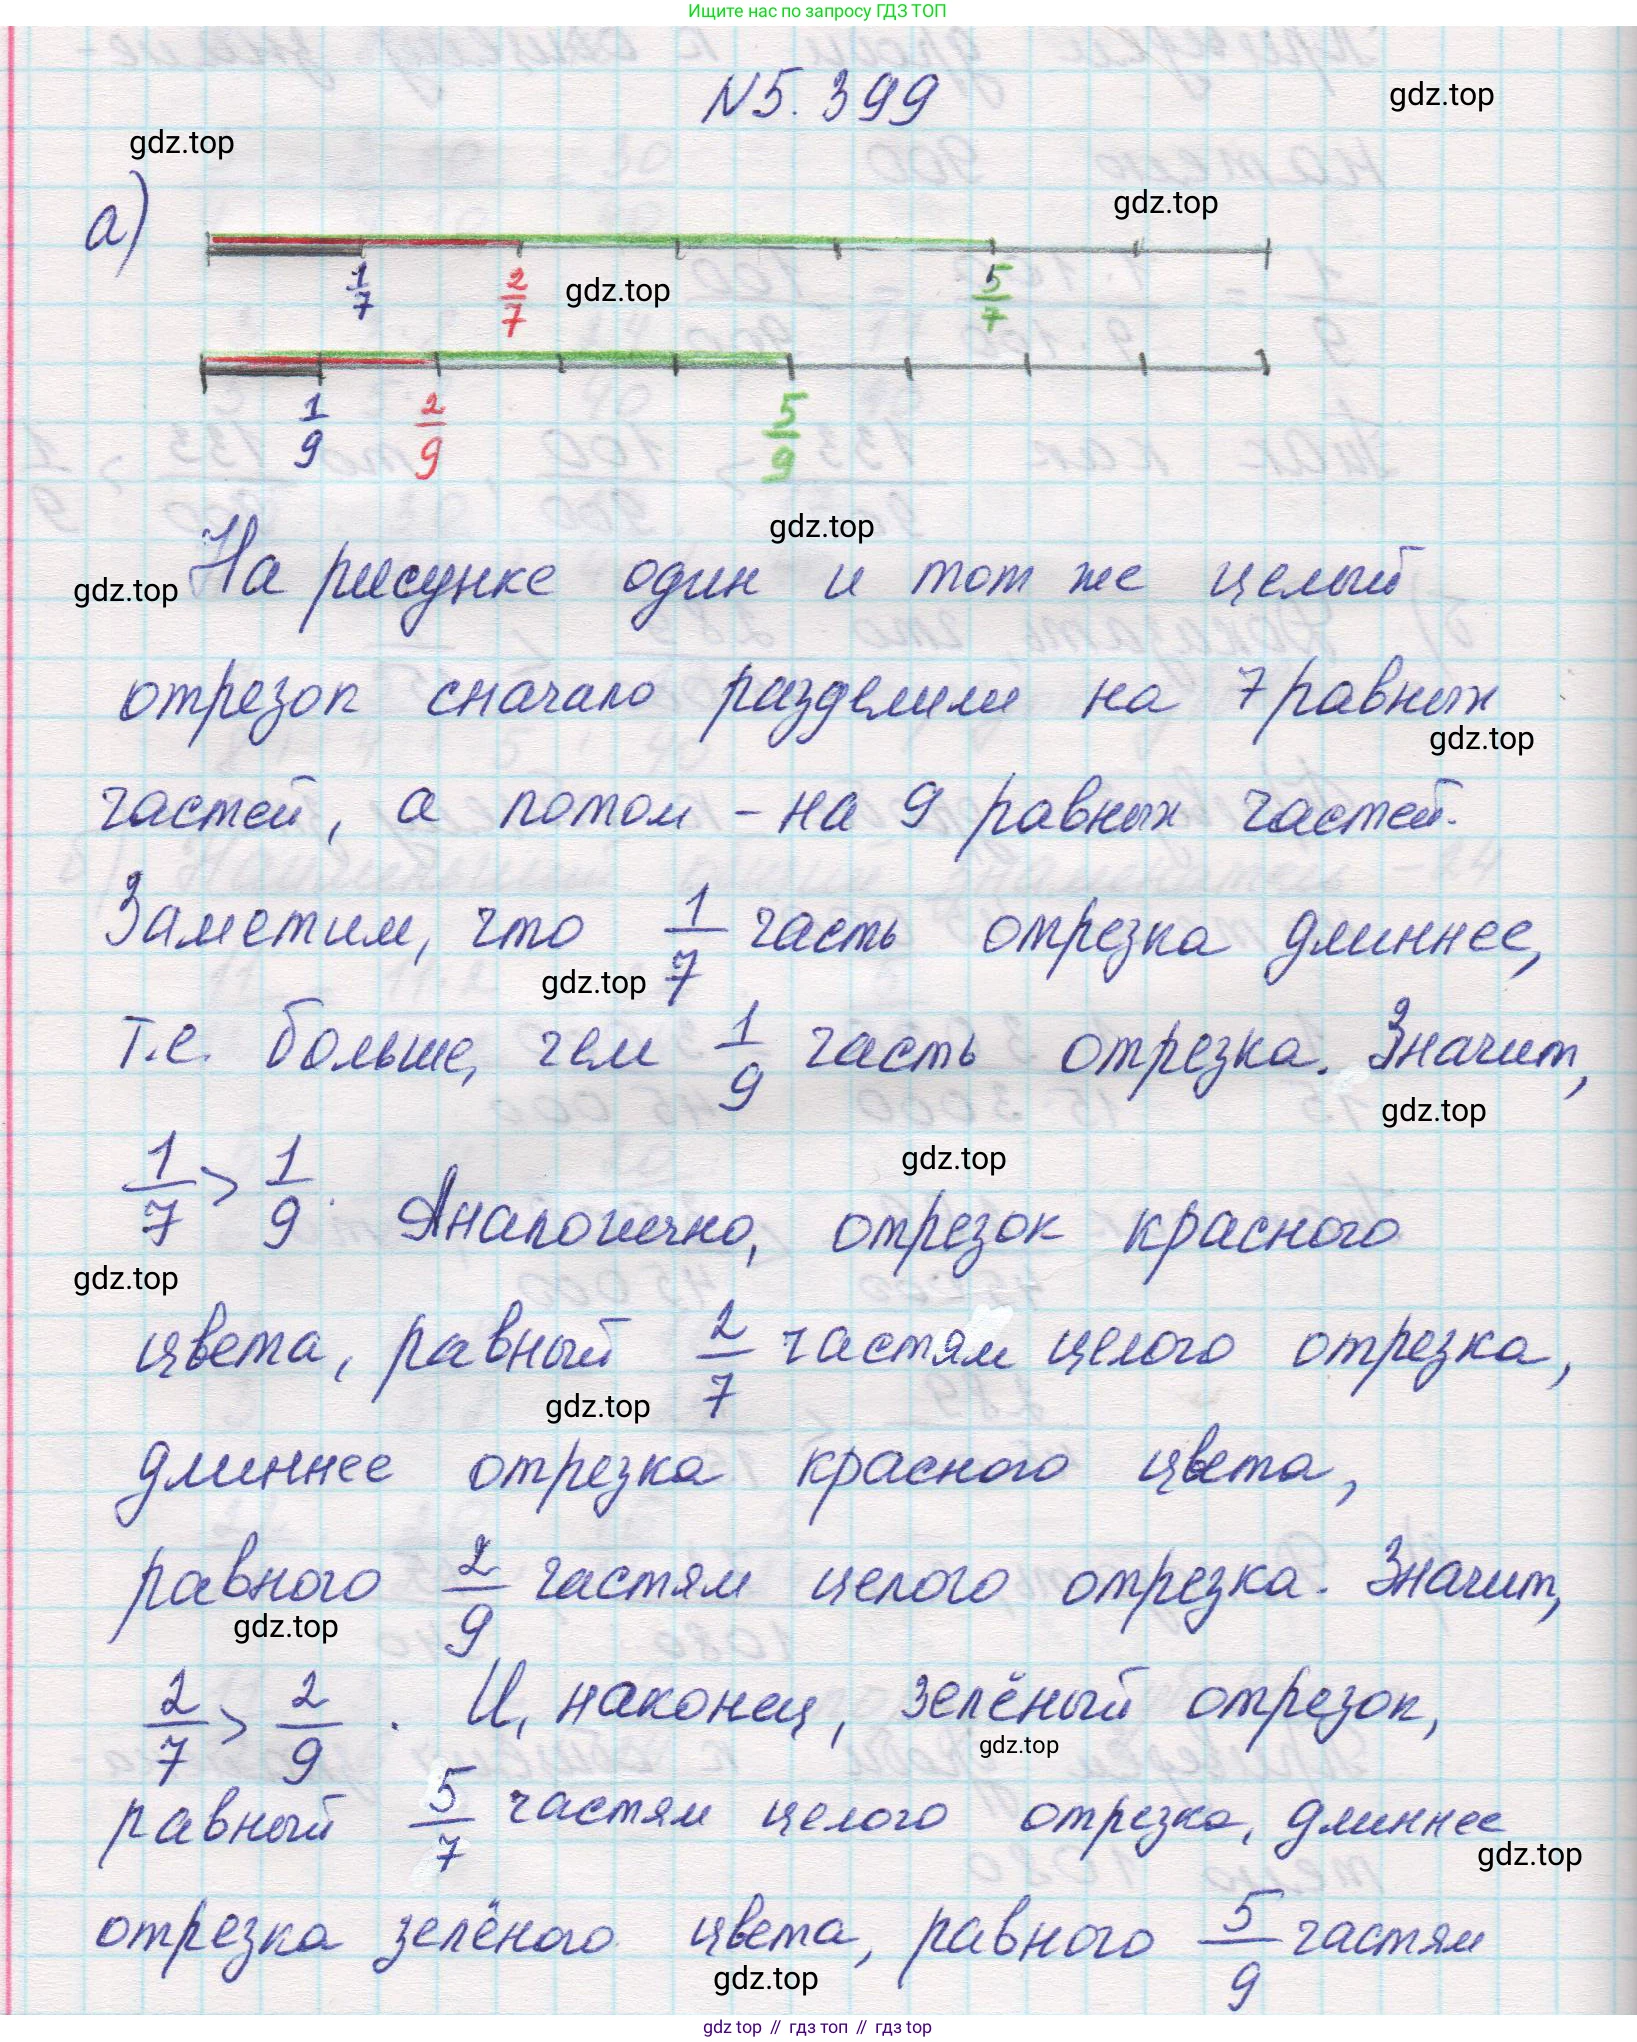 Ищите нас по запросу ГДЗ ТОП
N5.399
gdz.top
gdz.top
а)
gdz.top
1/7 2/7 5/7
gdz.top
1/9 2/9 5/9
gdz.top
На рисунке один и тот же целый
gdz.top
отрезок сначало разделили на 7 равных
gdz.top
частей, а потом - на 9 равных частей.
Заметим, что 1/7 часть отрезка длиннее,
gdz.top
т.е. больше, чем 1/9 часть отрезка. Значит,
gdz.top
gdz.top
1/7 > 1/9. Аналогично, отрезок красного
gdz.top
цвета, равный 2/7 частям целого отрезка,
gdz.top
длиннее отрезка красного цвета,
равного 2/9 частям целого отрезка. Значит,
gdz.top
2/7 > 2/9. И, наконец, зелёный отрезок,
gdz.top
равный 5/7 частям целого отрезка, длиннее
gdz.top
отрезка зелёного цвета, равного 5/9 частям
gdz.top
gdz top // гдз топ // гдз top